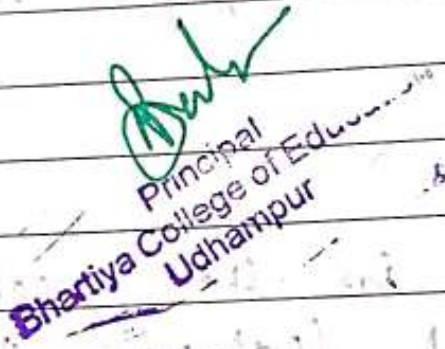 Principal
Bhartiya College of Education
Udhampur